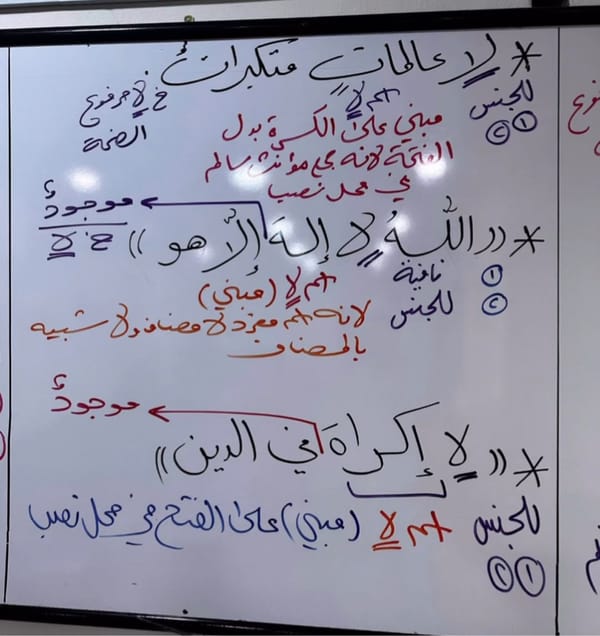 * لا عالماتٍ متكبراتٌ
للجنس اسم لا خ لا مرفوع
① ② مبني على الكسرة بدل الضمة
الفتحة لانه جمع مؤنث سالم
في محل نصب
موجودٌ
خ. لا
* ((اللَّهُ لا إلهَ إلَّا هو))
① نافية اسم لا (مبني)
② للجنس لانه اسم مفرد لا مضاف ولا شبيه
بالمضاف
موجودٌ
* ((لا إكراهَ في الدين))
للجنس اسم لا (مبني) على الفتح في محل نصب
① ②